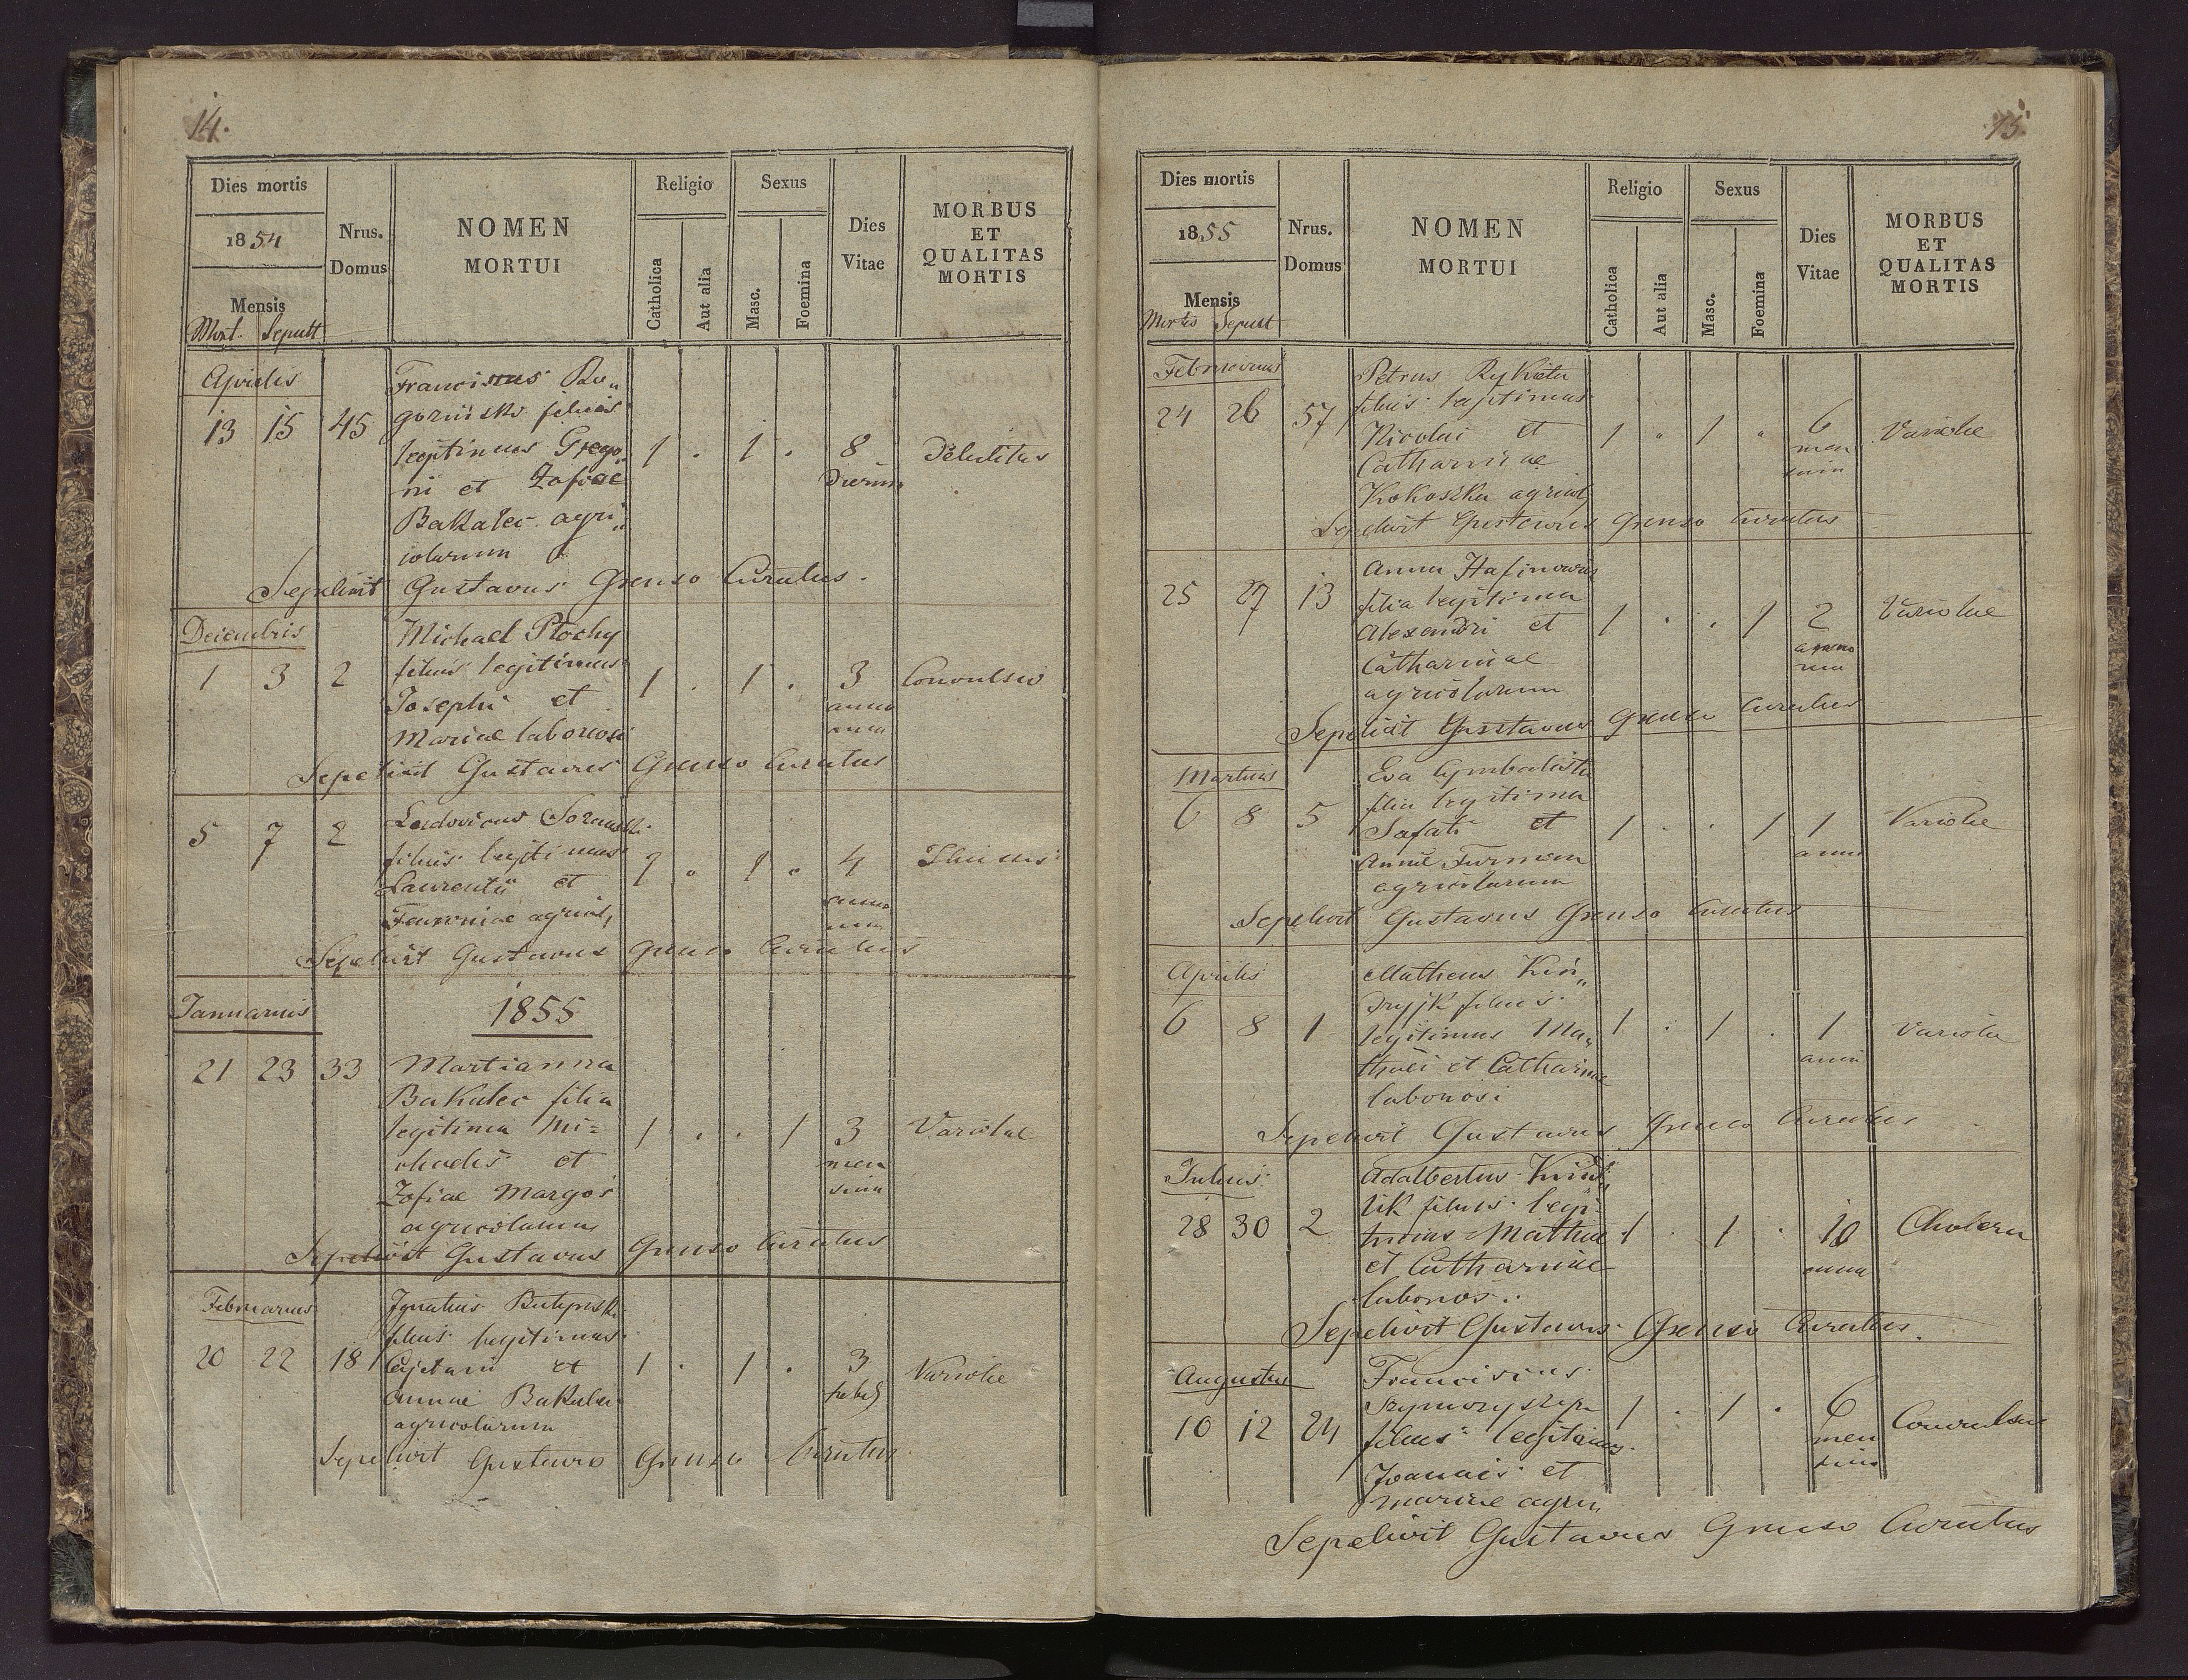 14.
Dies mortis
1854
Mensis
Mort. Sepult
Nrus.
Domus
NOMEN
MORTUI
Religio
Catholica
Aut alia
Sexus
Masc.
Foemina
Dies
Vitae
MORBUS
ET
QUALITAS
MORTIS
Aprilis
13 15 45
Franciscus
filius
legitimus Grego„
rii et Zofiae
Bakalec agri„
colarum
1 . 1 . 8
dierum
debilitas
Sepelivit Gustavus Grenso Curatus.
Decembris
1 3 2
Michael Plochy
filius legitimus
Josephi et
Mariae laborios:
1 . 1 . 3
anno
rum
Convulsio
Sepelivit Gustavus Grenso Curatus
5 7 2
Ludovicus
filius legitimus
Laurentii et
agricol,
1 . 1 . 4
anno
rum
Sepelivit Gustavus Grenso Curatus
Januarius
1855
21 23 33
Martianna
Bakalec filia
legitima Mi=
chaelis et
Zofiae Margos
agricolarum
1 . . 1 3
men
sium
Variolae
Sepelivit Gustavus Grenso Curatus
Februarius
20 22 18
Ignatius
filius legitimus
Cajetani et
Annae Bakalec
agricolarum
1 . 1 . 3
Variolae
Sepelivit Gustavus Grenso Curatus
15.
Dies mortis
1855
Mensis
Mortis Sepult
Nrus.
Domus
NOMEN
MORTUI
Religio
Catholica
Aut alia
Sexus
Masc.
Foemina
Dies
Vitae
MORBUS
ET
QUALITAS
MORTIS
Februarius
24 26 57
Petrus Rykieta
filius legitimus
Nicolai et
Catharinae
Kokoszka agricol
1 . 1 . 6
men
sium
Variolae
Sepelivit Gustavus Grenso Curatus
25 27 13
Anna
filia legitima
Alexandri et
Catharinae
agricolarum
1 . . 1 2
anno
rum
Variolae
Sepelivit Gustavus Grenso Curatus
Martius
6 8 5
Eva Cymbalista
filia legitima
Jofati et
Annae Furman
agricolarum
1 . . 1 1
anni
Variolae
Sepelivit Gustavus Grenso Curatus
Aprilis
6 8 1
Matheus Kin„
dryjk filius
legitimus Ma„
thaei et Catharinae
laboriosi
1 . 1 . 1
anni
Variola
Sepelivit Gustavus Grenso Curatus
Julius
28 30 2
Adalbertus
filius legi
timus Mathiae
et Catharinae
laborios:
1 . 1 . 10
Cholera
Sepelivit Gustavus Grenso Curatus.
Augustus
10 12 24
Franciscus
filius legitimus
Joannis et
Mariae agric,
1 . 1 . 6
men
sium
Convulsio
Sepelivit Gustavus Grenso Curatus